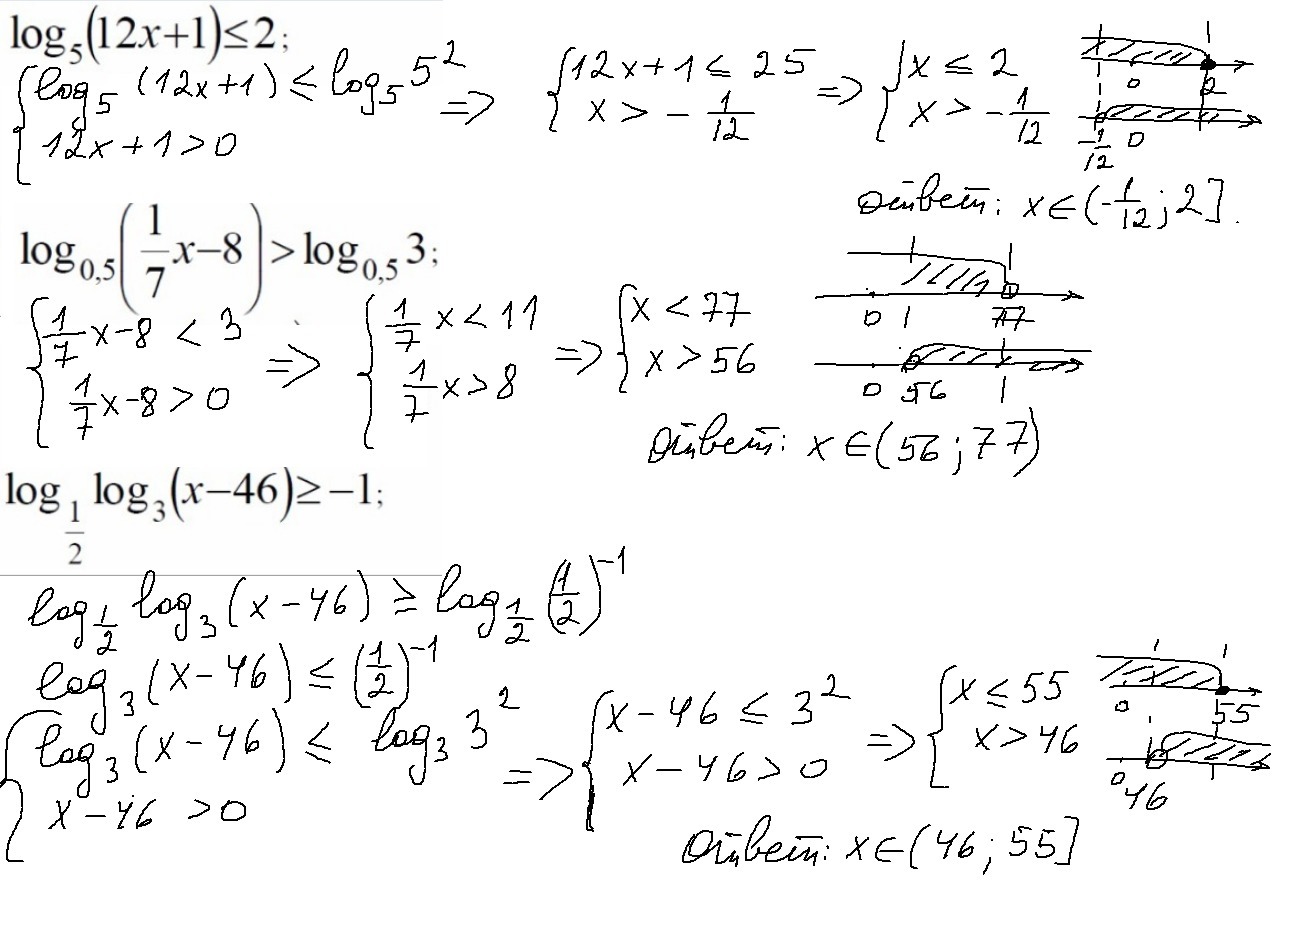 log₅(12x+1)≤2;
{ log₅(12x+1) ≤ log₅5² ; 12x+1>0 => { 12x+1 ≤ 25 ; x > -1/12 => { x ≤ 2 ; x > -1/12
0 2
-1/12 0
Ответ: x∈(-1/12; 2].
log₀,₅(1/7 x−8) > log₀,₅ 3;
{ 1/7 x-8 < 3 ; 1/7 x-8 > 0 => { 1/7 x < 11 ; 1/7 x > 8 => { x < 77 ; x > 56
0 77
0 56
Ответ: x∈(56; 77)
log_1/2 log₃(x−46)≥−1;
log_1/2 log₃(x-46) ≥ log_1/2 (1/2)⁻¹
log₃(x-46) ≤ (1/2)⁻¹
{ log₃(x-46) ≤ log₃3² ; x-46 > 0 => { x-46 ≤ 3² ; x-46 > 0 => { x ≤ 55 ; x > 46
0 55
0 46
Ответ: x∈(46; 55]